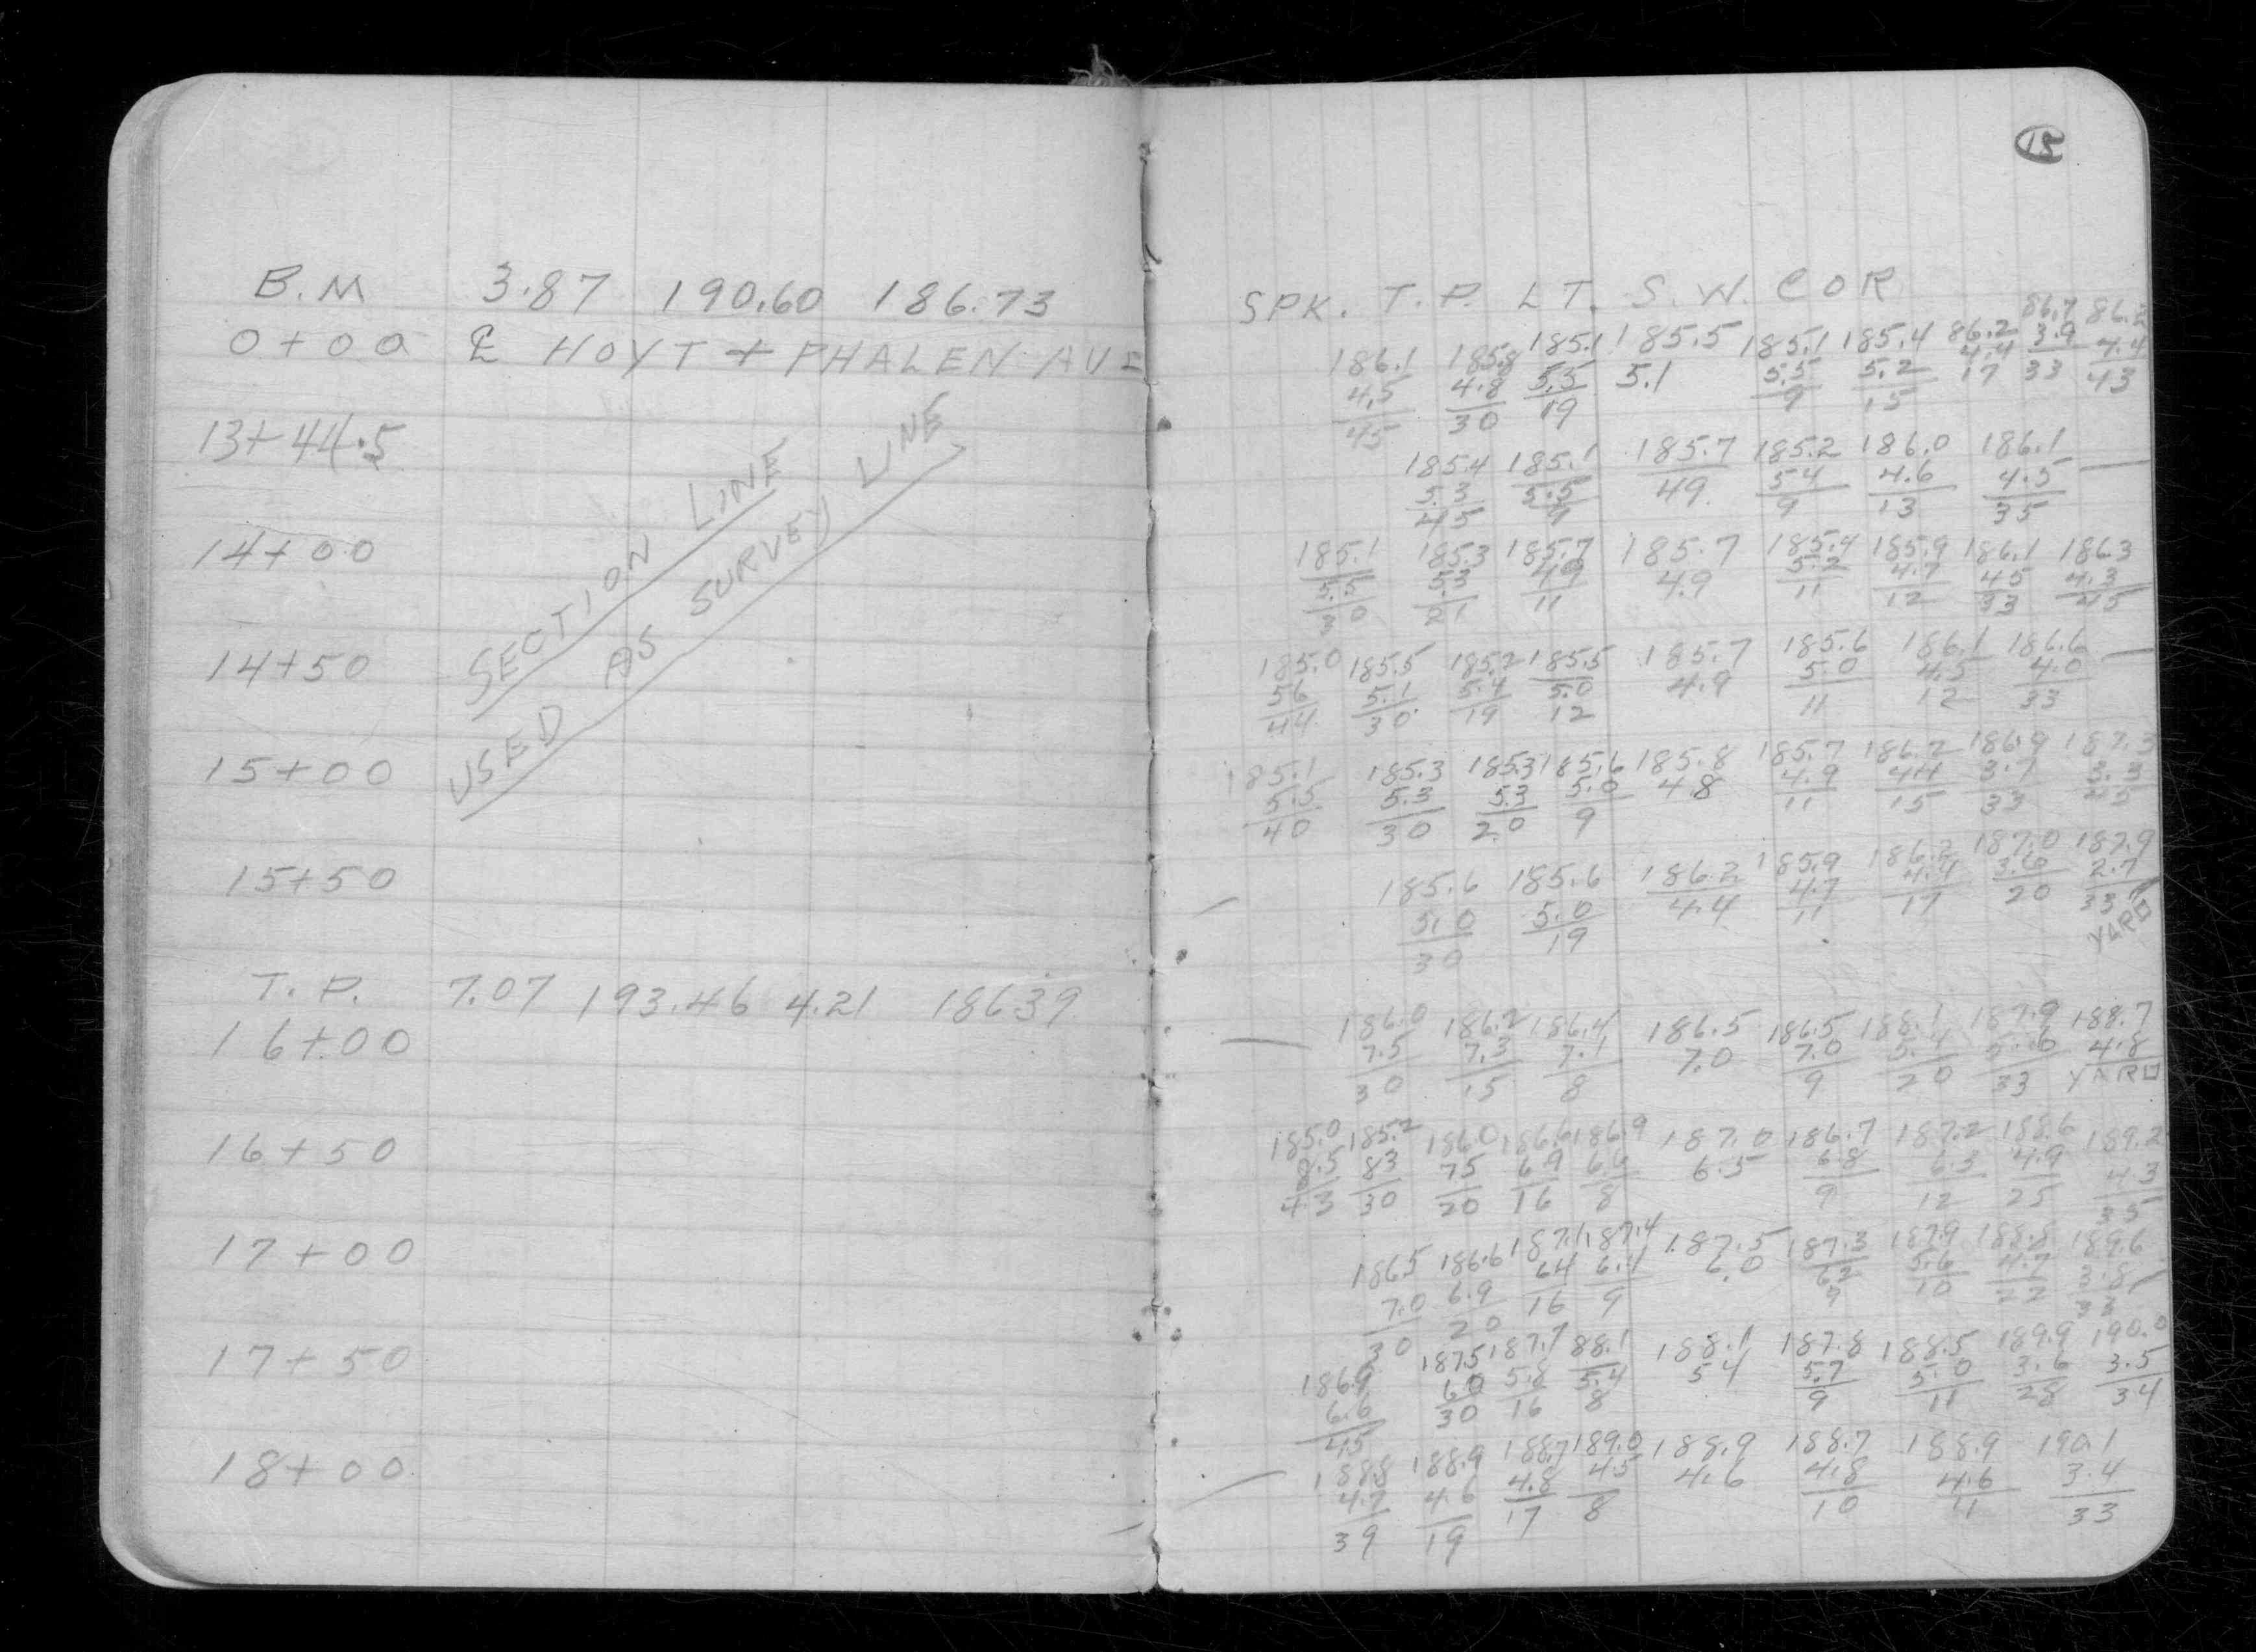 B.M 3.87 190.60 186.73
0+00 ℄ HOYT + PHALEN AVE
13+44.5
14+00
14+50
15+00
15+50
T.P. 7.07 193.46 4.21 186.39
16+00
16+50
17+00
17+50
18+00
SECTION LINE
USED AS SURVEY LINE
15
SPK. T.P. LT. S.W. COR
186.1 185.8 185.1 185.5 185.1 185.4 86.2 86.7 86.2
4.5 4.8 5.5 5.1 5.5 5.2 4.4 3.9 4.4
45 30 19 9 15 17 33 43
185.4 185.1 185.7 185.2 186.0 186.1
5.3 5.5 49 54 4.6 4.5
45 9 9 13 35
185.1 185.3 185.7 185.7 185.4 185.9 186.1 186.3
5.5 5.3 49 4.9 5.2 4.7 45 4.3
30 21 11 11 12 33 45
185.0 185.5 185.2 185.5 185.7 185.6 186.1 186.6
56 5.1 5.4 5.0 4.9 5.0 4.5 4.0
44 30 19 12 11 12 33
185.1 185.3 185.3 185.6 185.8 185.7 186.2 186.9 187.3
5.5 5.3 5.3 5.0 4.8 4.9 44 3.7 3.3
40 30 20 9 11 15 33 45
185.6 185.6 186.2 185.9 186.2 187.0 187.9
5.0 5.0 4.4 4.7 4.4 3.6 2.7
30 19 11 17 20 33
YARD
186.0 186.2 186.4 186.5 186.5 188.1 187.9 188.7
7.5 7.3 7.1 7.0 7.0 5.4 5.6 4.8
30 15 8 9 20 33 YARD
185.0 185.2 186.0 186.6 186.9 187.0 186.7 187.2 188.6 189.2
8.5 83 75 6.9 6.6 6.5 6.8 6.3 4.9 4.3
43 30 20 16 8 9 12 25 35
186.5 186.6 187.1 187.4 187.5 187.3 187.9 188.8 189.6
7.0 6.9 64 6.1 6.0 62 5.6 4.7 3.8
30 20 16 9 9 10 22 33
186.9 187.5 187.7 88.1 188.1 187.8 188.5 189.9 190.0
6.6 60 5.8 5.4 54 5.7 5.0 3.6 3.5
45 30 16 8 9 11 28 34
188.8 188.9 188.7 189.0 188.9 188.7 188.9 190.1
4.7 4.6 4.8 45 4.6 4.8 4.6 3.4
39 19 17 8 10 11 33